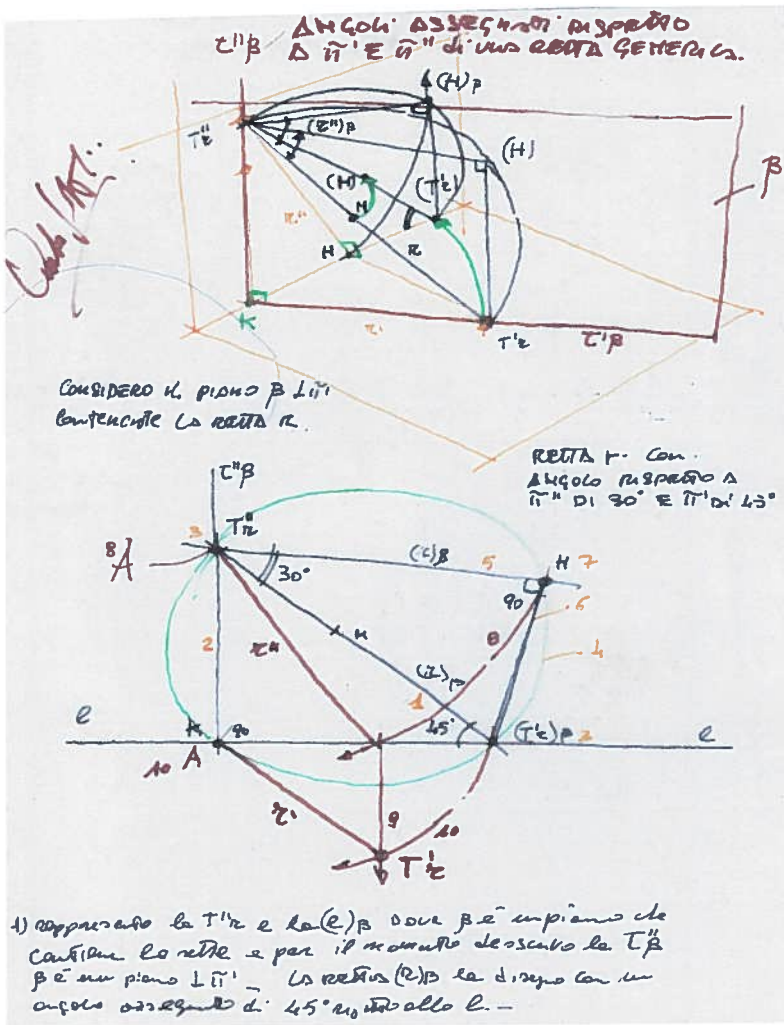 ANGOLI ASSEGNATI RISPETTO
A π' E π" di UNA RETTA GENERICA.
τ"β
(H)β
T"r
(r")β
(H)
β
(H)
(T'r)
M
r"
H
r
K
r'
T'r
τ'β
CONSIDERO IL PIANO β ⊥ π'
CONTENENTE LA RETTA r.
RETTA r. Con.
ANGOLO RISPETTO A
π" DI 30° E π' DI 45°
τ"β
T"r
3
8 A
30°
(r)β
5
H
7
90
6
2
r"
M
8
4
1
(r)β
l
K
90
45°
(T'r)β
2
l
10
A
r'
9
10
T'r
1) rappresento la T"r e la (r)β dove β è un piano che
contiene la retta e per il momento la τ"β
β è un piano ⊥ π' _ LA RETTA (r)β la disegno con un
angolo assegnato di 45° rispetto alla l. –